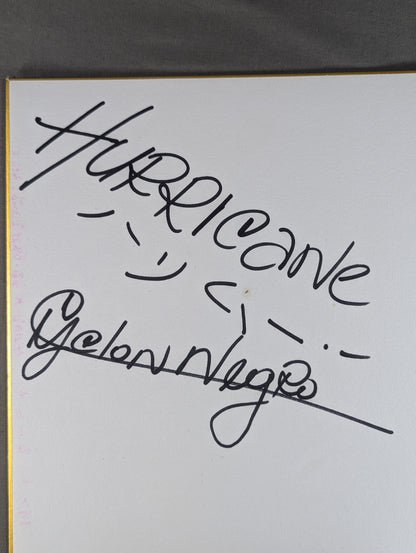 HURRICANE
Cyclon Negro